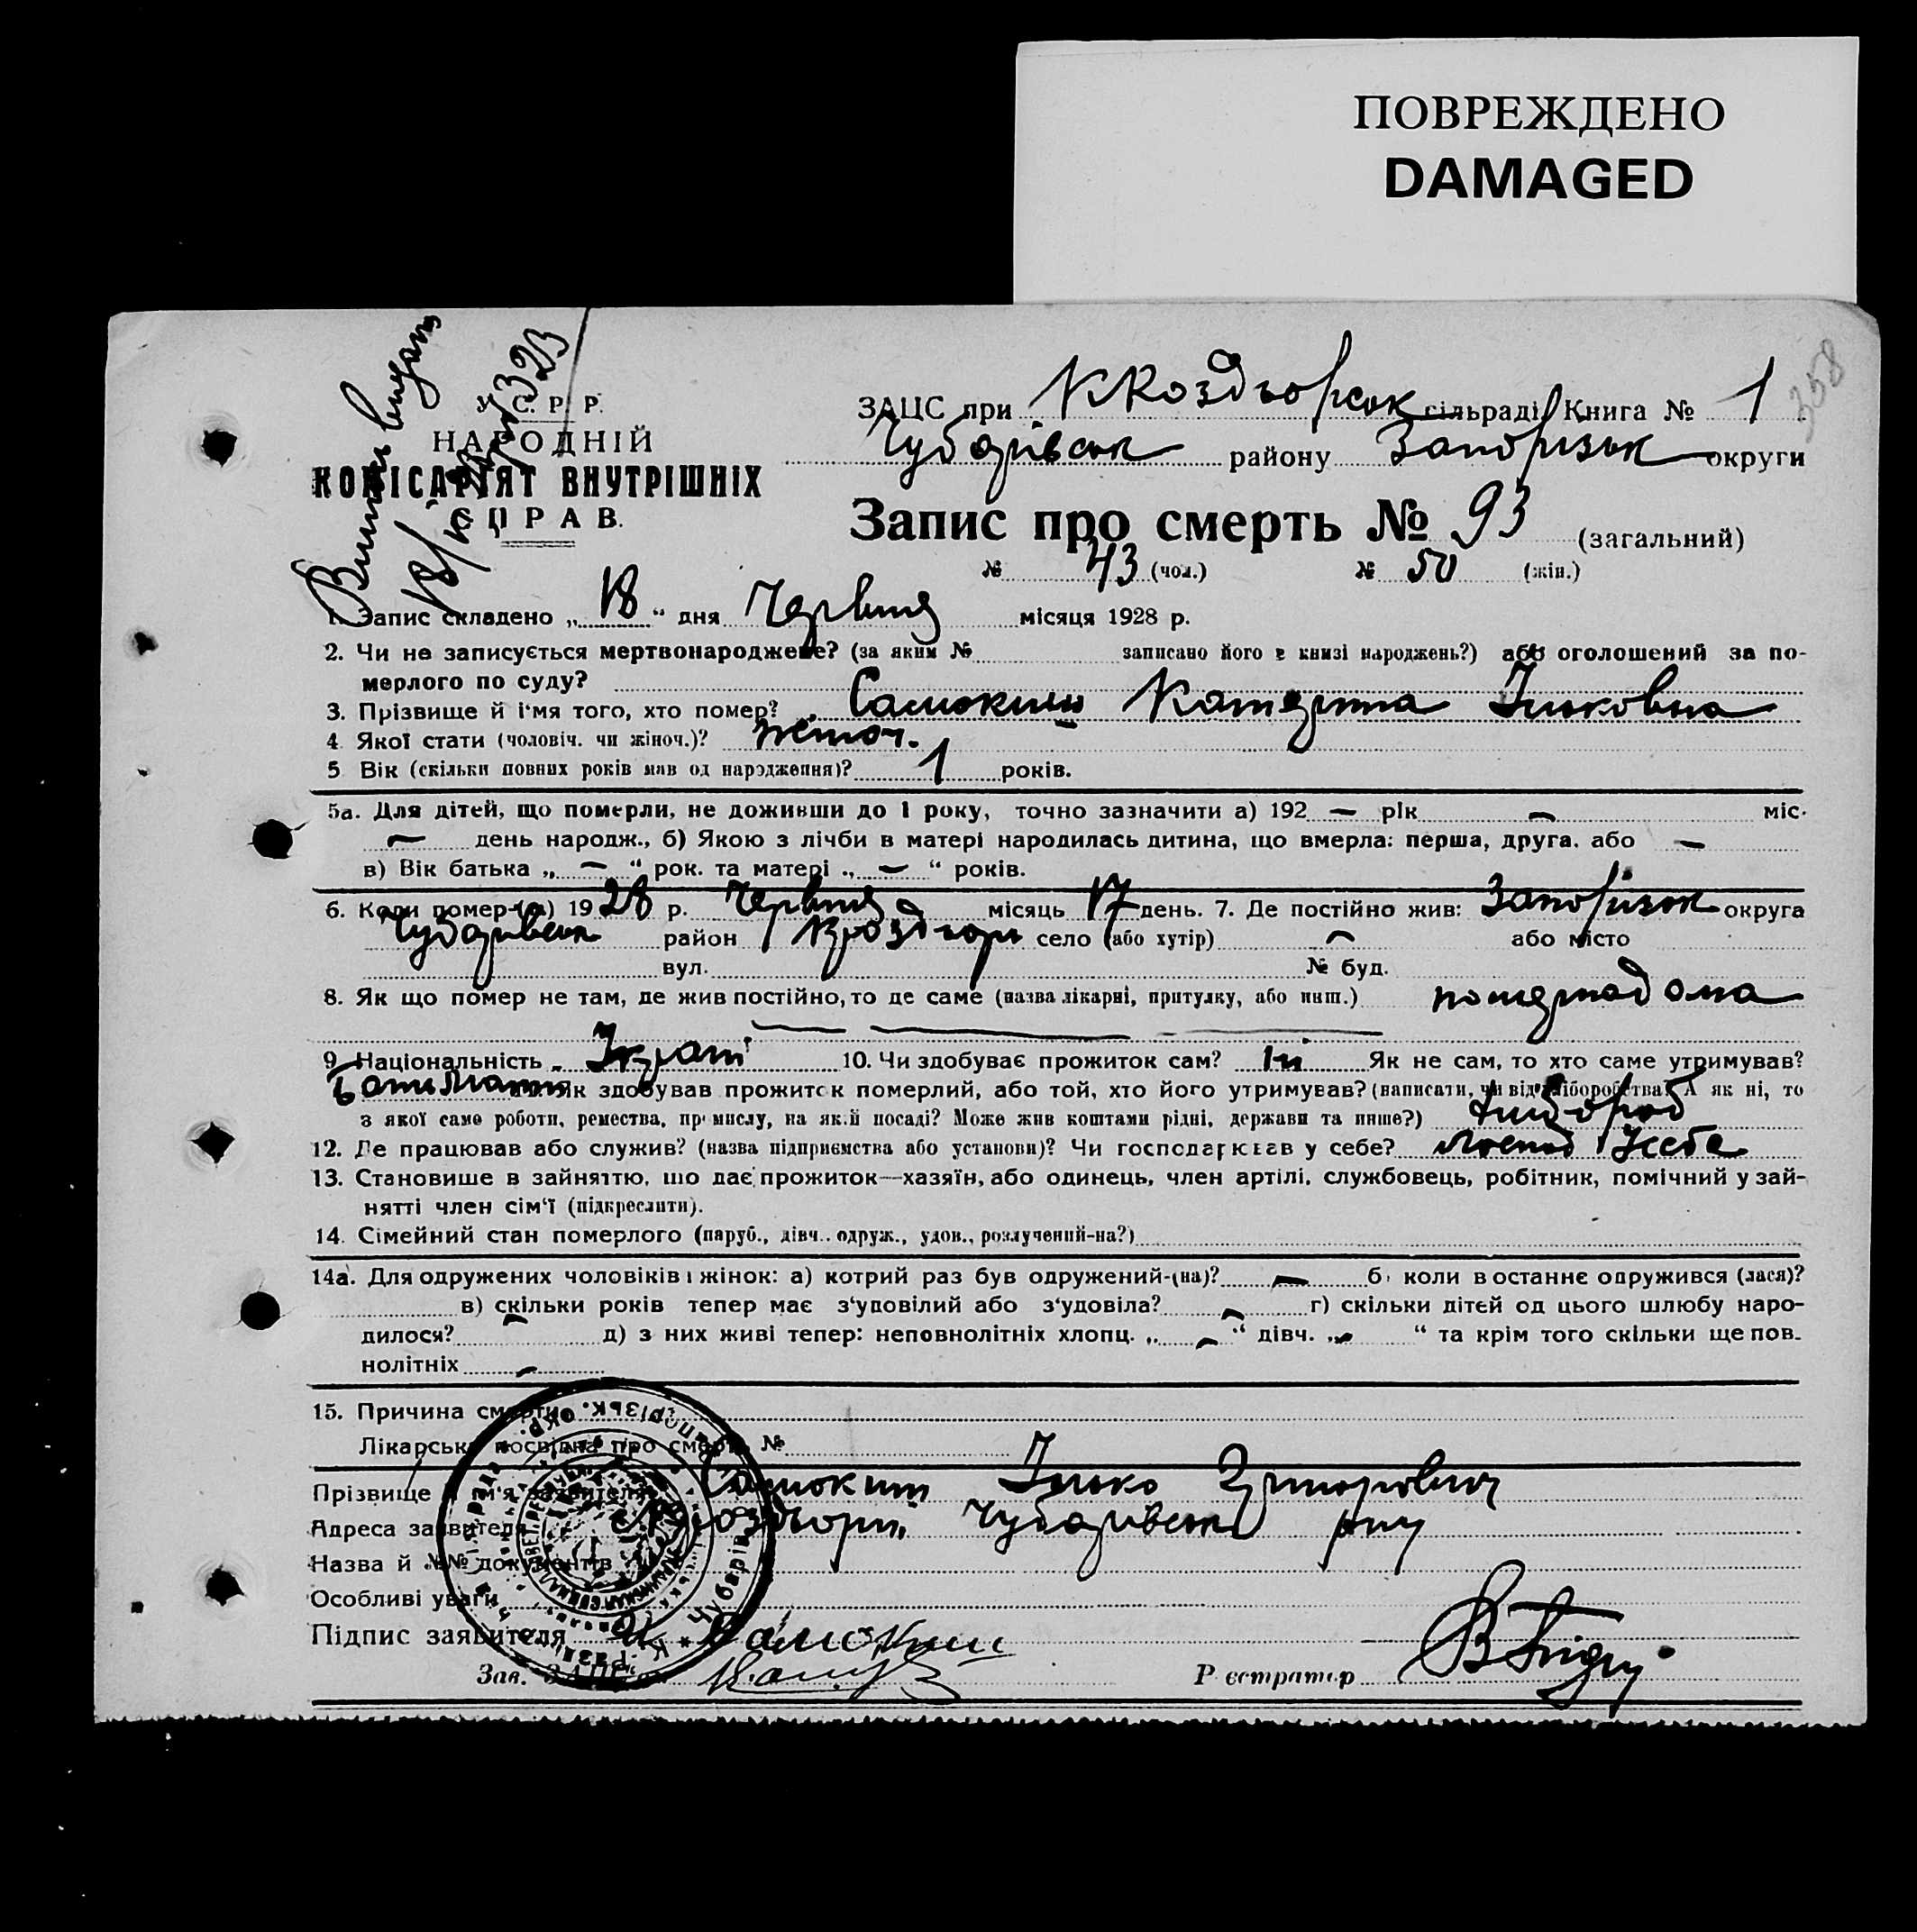 ПОВРЕЖДЕНО
DAMAGED
358
У. С. Р. Р.
НАРОДНІЙ
КОМІСАРІЯТ ВНУТРІШНІХ
СПРАВ.
ЗАЦС при сільраді Книга № 1
Чубарівськ району Запорізьк округи
Запис про смерть № 93 (загальний)
№ 43 (чол.) № 50 (жін.)
1. Запис складено „ 18 “ дня Червня місяця 1928 р.
2. Чи не записується мертвонароджене? (за яким № записано його в книзі народжень?) або оголошений за по-
мерлого по суду?
3. Прізвище й і‘мя того, хто помер? Самокиш Катерина Ільковна
4. Якої стати (чоловіч. чи жіноч.)? жіноч.
5 Вік (скільки повних років мав од народження)? 1 років.
5а. Для дітей, що померли, не доживши до 1 року, точно зазначити а) 192 — рік — міс.
— день народж., б) Якою з лічби в матері народилась дитина, що вмерла: перша, друга, або —
в) Вік батька „ — “ рок. та матері „ — “ років.
6. Коли помер(ла) 1928 р. Червня місяць 17 день. 7. Де постійно жив: Запорізьк округа
Чубарівськ район село (або хутір) — або місто
вул. № буд.
8. Як що помер не там, де жив постійно, то де саме (назва лікарні, притулку, або инш.) померла дома
9. Національність Україн 10. Чи здобуває прожиток сам? ні Як не сам, то хто саме утримував?
Як здобував прожиток померлий, або той, хто його утримував? (написати, чи від хліборобства? А як ні, то
з якої саме роботи, ремества, промислу, на якій посаді? Може жив коштами рідні, держави та инше?) хлібороб
12. Де працював або служив? (назва підприємства або установи)? Чи господарював у себе? господ у себе
13. Становише в зайняттю, що дає прожиток—хазяїн, або одинець, член артілі, службовець, робітник, помічний у зай-
нятті член сім‘ї (підкреслити).
14. Сімейний стан померлого (паруб., дівч., одруж., удов., розлучений-на?)
14а. Для одружених чоловіків і жінок: а) котрий раз був одружений-(на)? — б) коли в останнє одружився (лася)?
в) скільки років тепер має з‘удовілий або з‘удовіла? — г) скільки дітей од цього шлюбу наро-
дилося? — д) з них живі тепер: неповнолітніх хлопц. „ — “ дівч. „ — “ та крім того скільки ще пов-
нолітніх —
15. Причина смерти
Лікарська посвідка про смерть №
Прізвище й ім‘я заявителя Самокиш Ілько Григорович
Адреса заявителя Чубарівськ р-ну
Назва й №№ документів
Особливі уваги
Підпис заявителя Самокиш
Зав. ЗАЦС‘ом Реєстратор